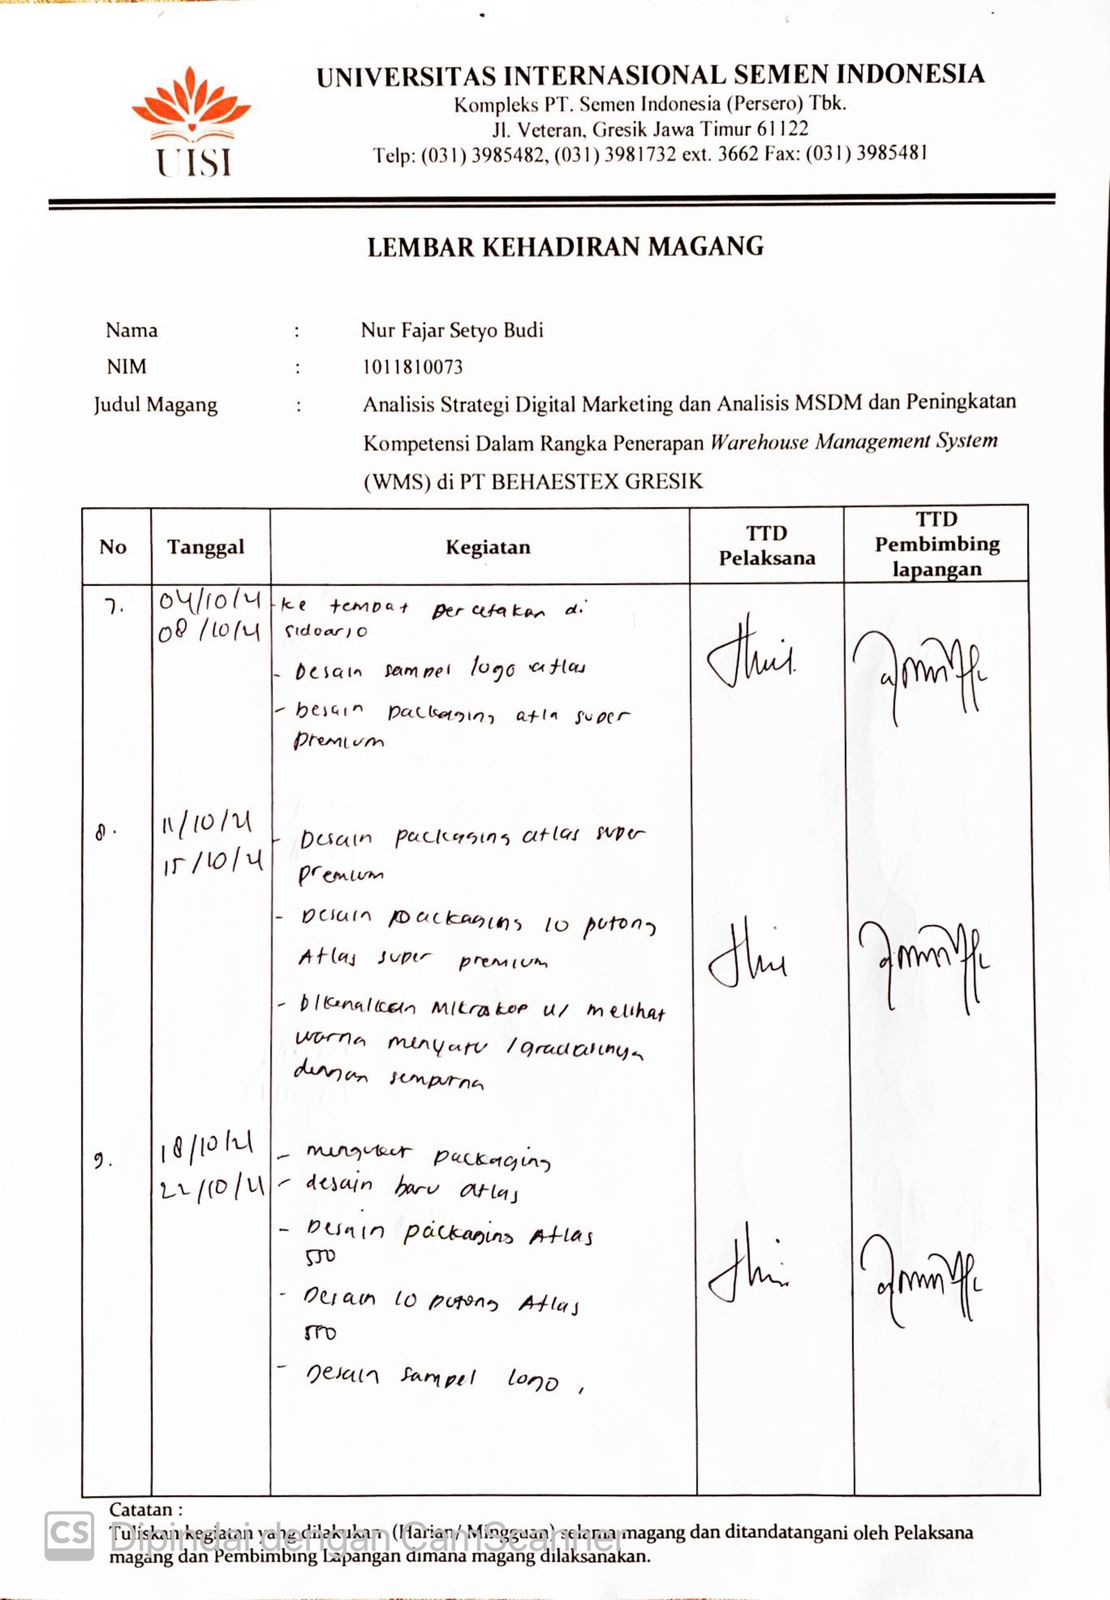 UNIVERSITAS INTERNASIONAL SEMEN INDONESIA
Kompleks PT. Semen Indonesia (Persero) Tbk.
Jl. Veteran, Gresik Jawa Timur 61122
Telp: (031) 3985482, (031) 3981732 ext. 3662 Fax: (031) 3985481
UISI
LEMBAR KEHADIRAN MAGANG
Nama : Nur Fajar Setyo Budi
NIM : 1011810073
Judul Magang : Analisis Strategi Digital Marketing dan Analisis MSDM dan Peningkatan
Kompetensi Dalam Rangka Penerapan Warehouse Management System
(WMS) di PT BEHAESTEX GRESIK
No Tanggal Kegiatan TTD Pelaksana TTD Pembimbing lapangan
7. 04/10/21 - ke tempat percetakan di
08/10/21 sidoarjo
- Desain sampel logo atlas
- Desain packaging atla super
premium
8. 11/10/21 - Desain packaging atlas super
15/10/21 premium
- Desain packaging 10 potong
Atlas super premium
- Dikenalkan mikroskop u/ melihat
warna menyatu /gradasinya
dengan sempurna
9. 18/10/21 - mengukur packaging
22/10/21 - desain baru atlas
- Desain packaging Atlas
550
- Desain 10 potong Atlas
550
- Desain sampel logo,
Catatan :
Tuliskan kegiatan yang dilakukan (Harian/ Mingguan) selama magang dan ditandatangani oleh Pelaksana
magang dan Pembimbing Lapangan dimana magang dilaksanakan.
CS Dipindai dengan CamScanner